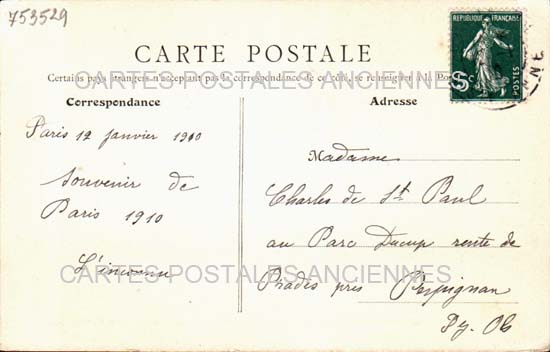 753529
REPUBLIQUE FRANÇAISE
5c
POSTES
CARTE POSTALE
Certains pays étrangers n'acceptant pas la correspondance de ce côté, se renseigner à la Poste
CARTES POSTALES ANCIENNES
Correspondance
Adresse
Paris 12 janvier 1910
Souvenir de
Paris 1910
L'inconnu
Madame
Charles de St Paul
au Parc Ducup rente de
Prades pres Perpignan
Py. Ob
CARTES POSTALES ANCIENNES